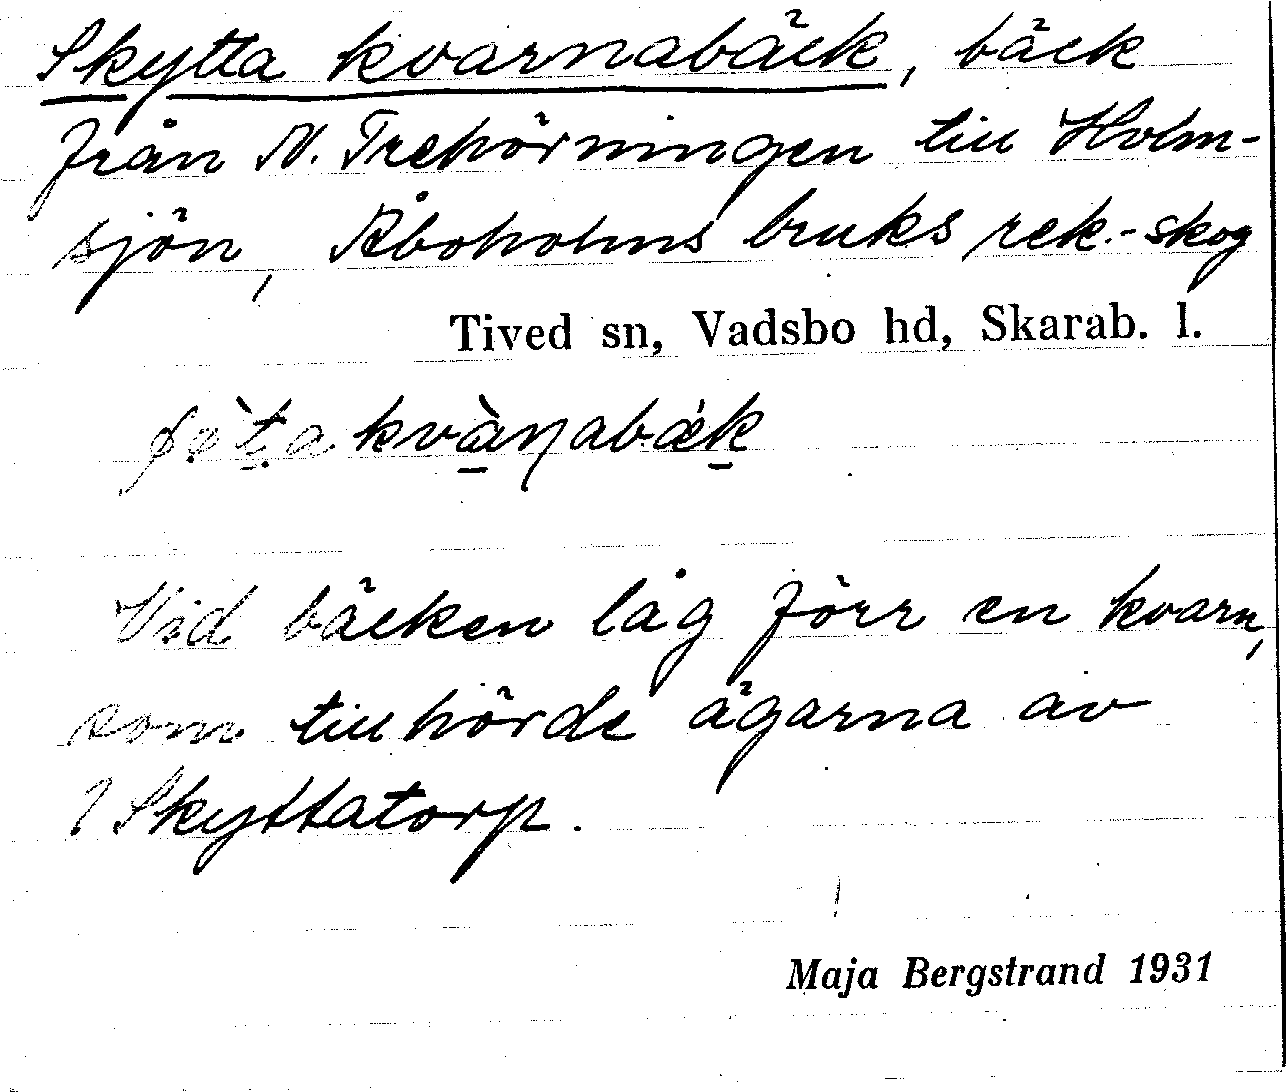 Skytta kvarnabäck, bäck
från N. Trehörningen till Holm-
sjön, Åboholms bruks rek.-skog
Tived sn, Vadsbo hd, Skarab. l.
kvàṉabǽk
Vid bäcken låg förr en kvarn,
som tillhörde ägarna av
? Skyttatorp.
Maja Bergstrand 1931